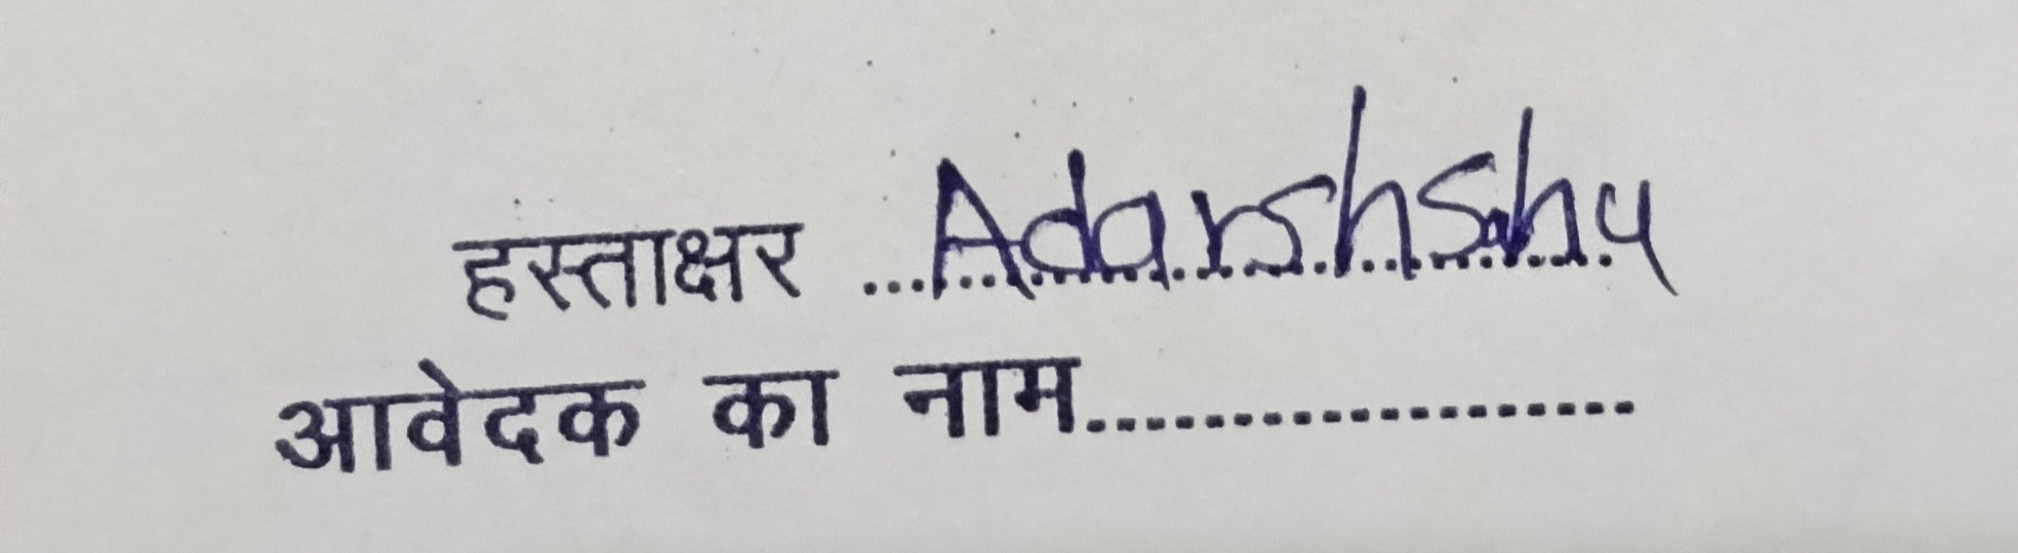 हस्ताक्षर ...Adarshshy
आवेदक का नाम...................